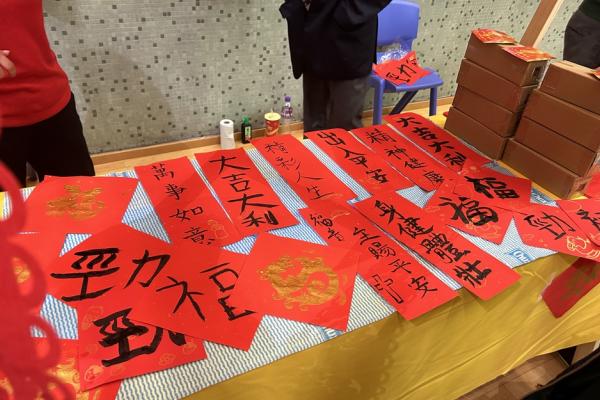 萬事如意
大吉大利
精彩人生
出入平安
精神健康
大吉大利
福音
主賜平安
身健體壯
福
福
勁
勁
勁
勁